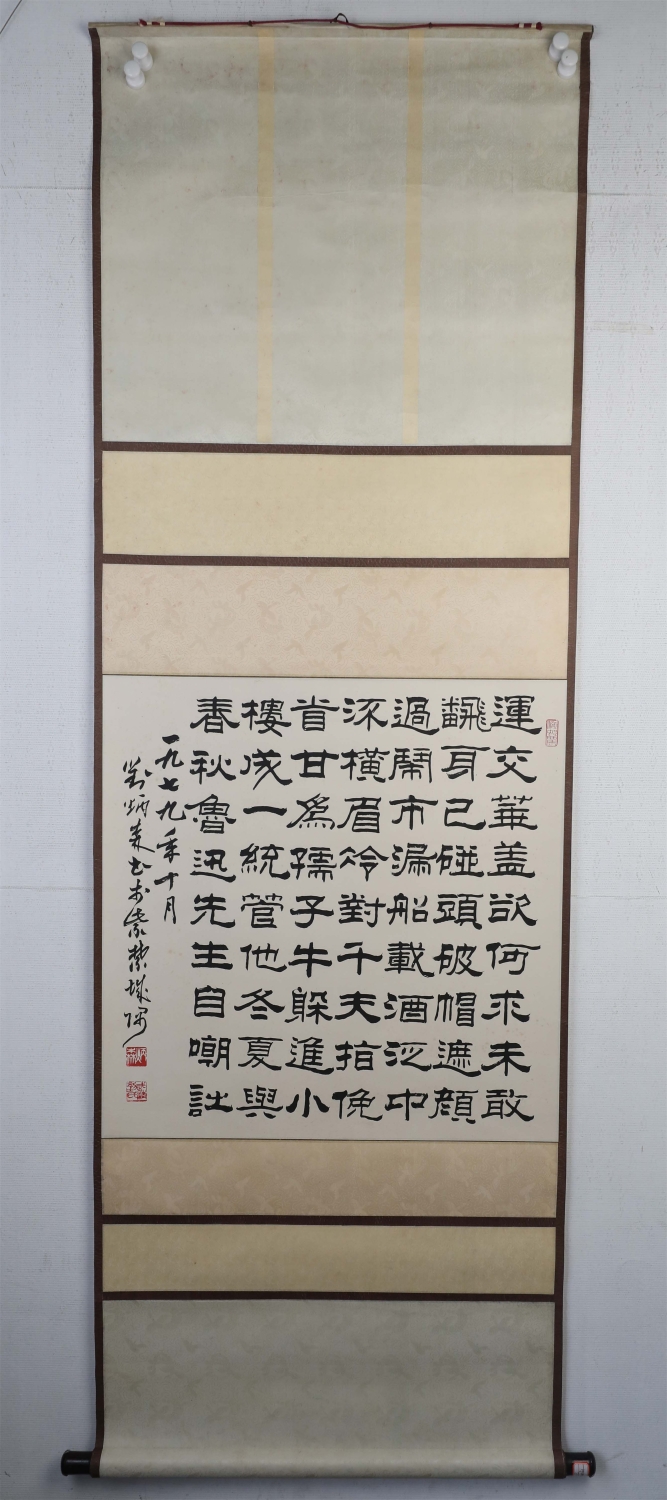 運交華盖欲何求未敢
飜身已碰頭破帽遮顏
過鬧市漏船載酒泛中
流橫眉冷對千夫指俛
首甘爲孺子牛躲進小
樓成一統管他冬夏與
春秋魯迅先生自嘲詩
一九七九年十月
劉炳森書於紫禁城隅